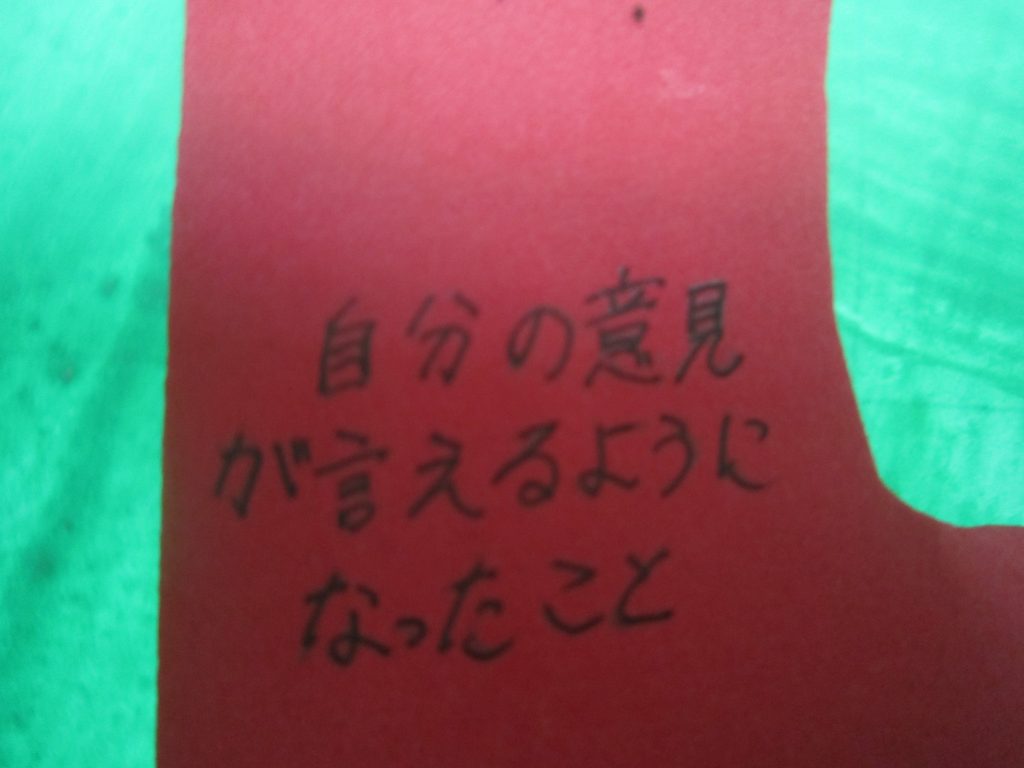 自分の意見
が言えるように
なったこと